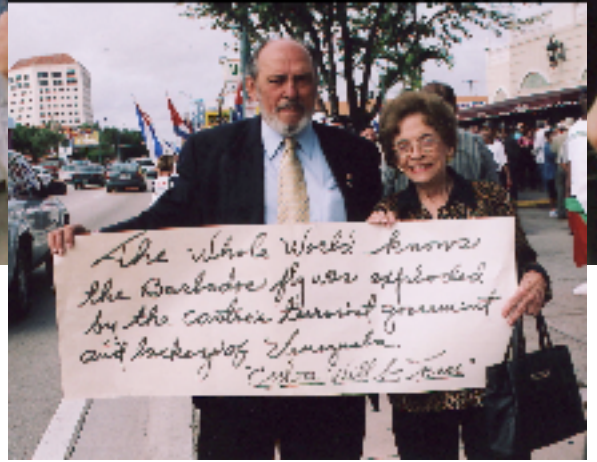 The Whole World knows
the Barbados fly was exploded
by the castro's terrorist goverment
and lackeys of Venezuela.
"Cuba Will be Free"